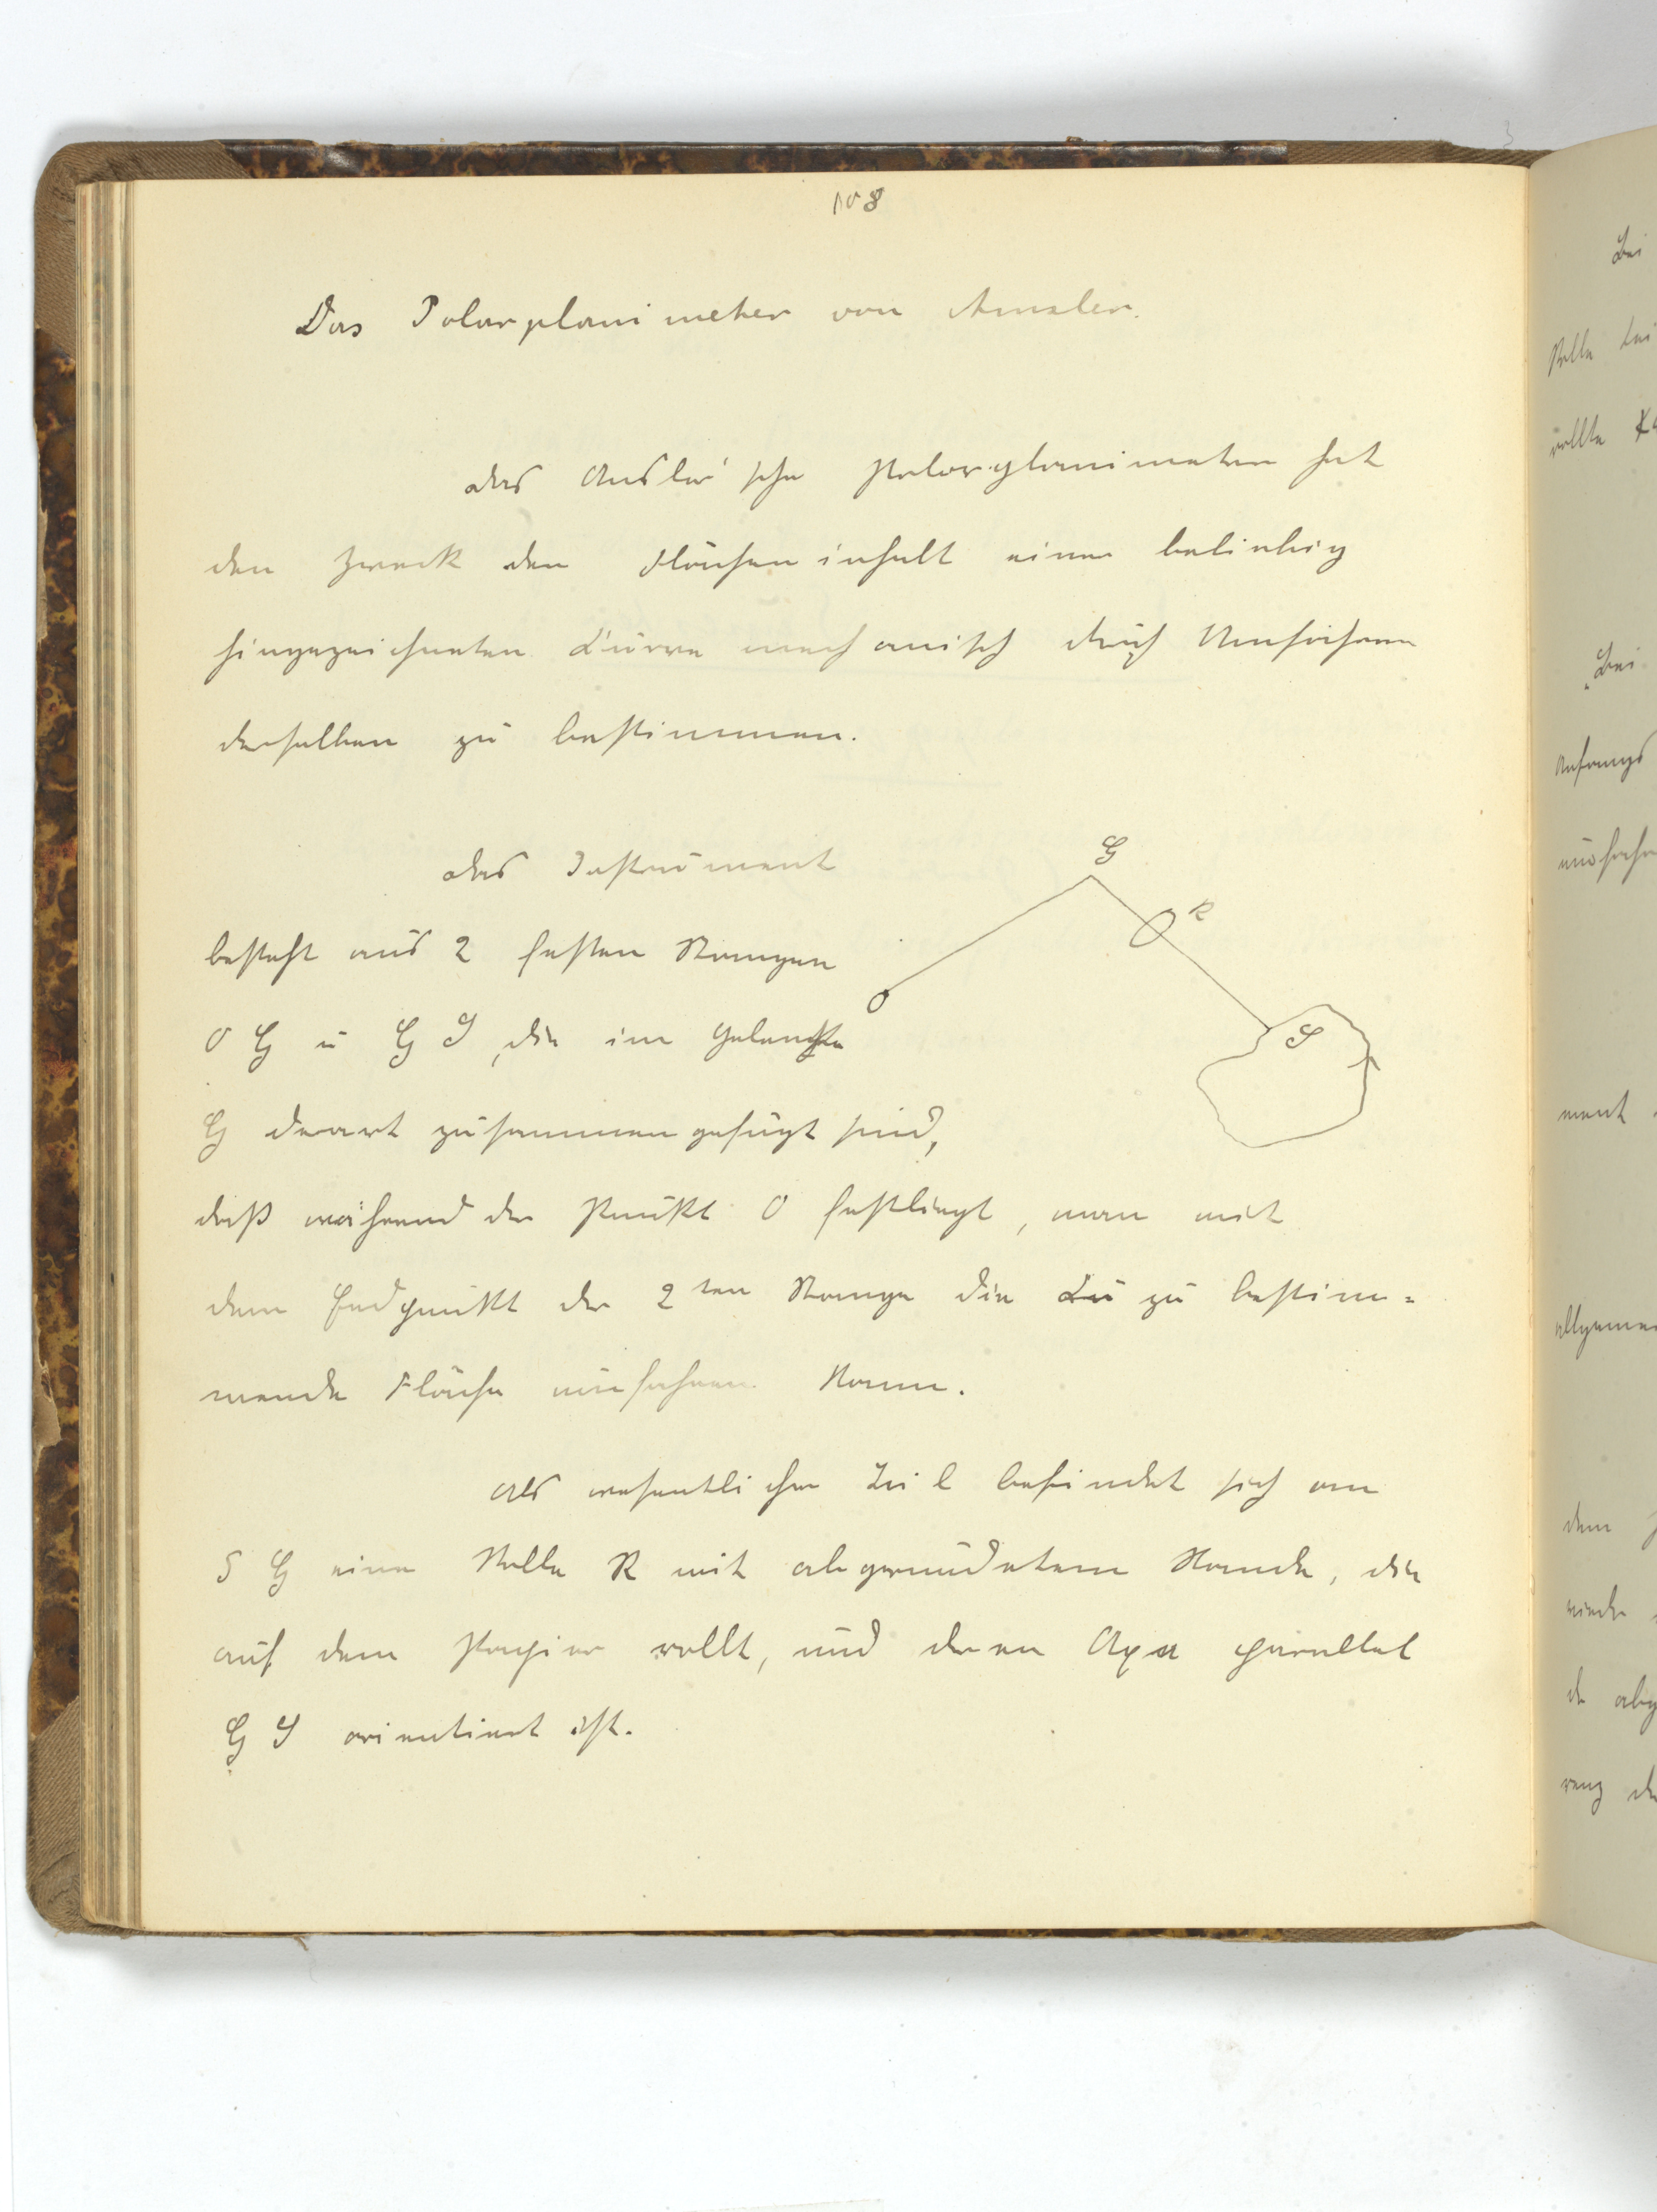 108
Das Polarplanimeter von Amsler.
das Amsler'sche Polarplanimeter hat
den Zweck den Flächeninhalt einer beliebig
hingezeichneten Curve mechanisch durch Umfahren
derselben zu bestimmen.
das Instrument
besteht aus 2 festen Stangen
O G u G S, die im Gelenke
G derart zusammengefügt sind,
daß während der Punkt O festliegt, man mit
dem Endpunkt der 2ten Stange die zu bestim=
mende Fläche umfahren kann.
Als wesentlicher Teil befindet sich am
S G eine Rolle R mit abgerundetem Rande, die
auf dem Papier rollt, und deren Axe parallel
G S orientiert ist.
G
R
O
S
Bei
Rolle bei
rollte
Bei
Anfangs
ment
dem
de